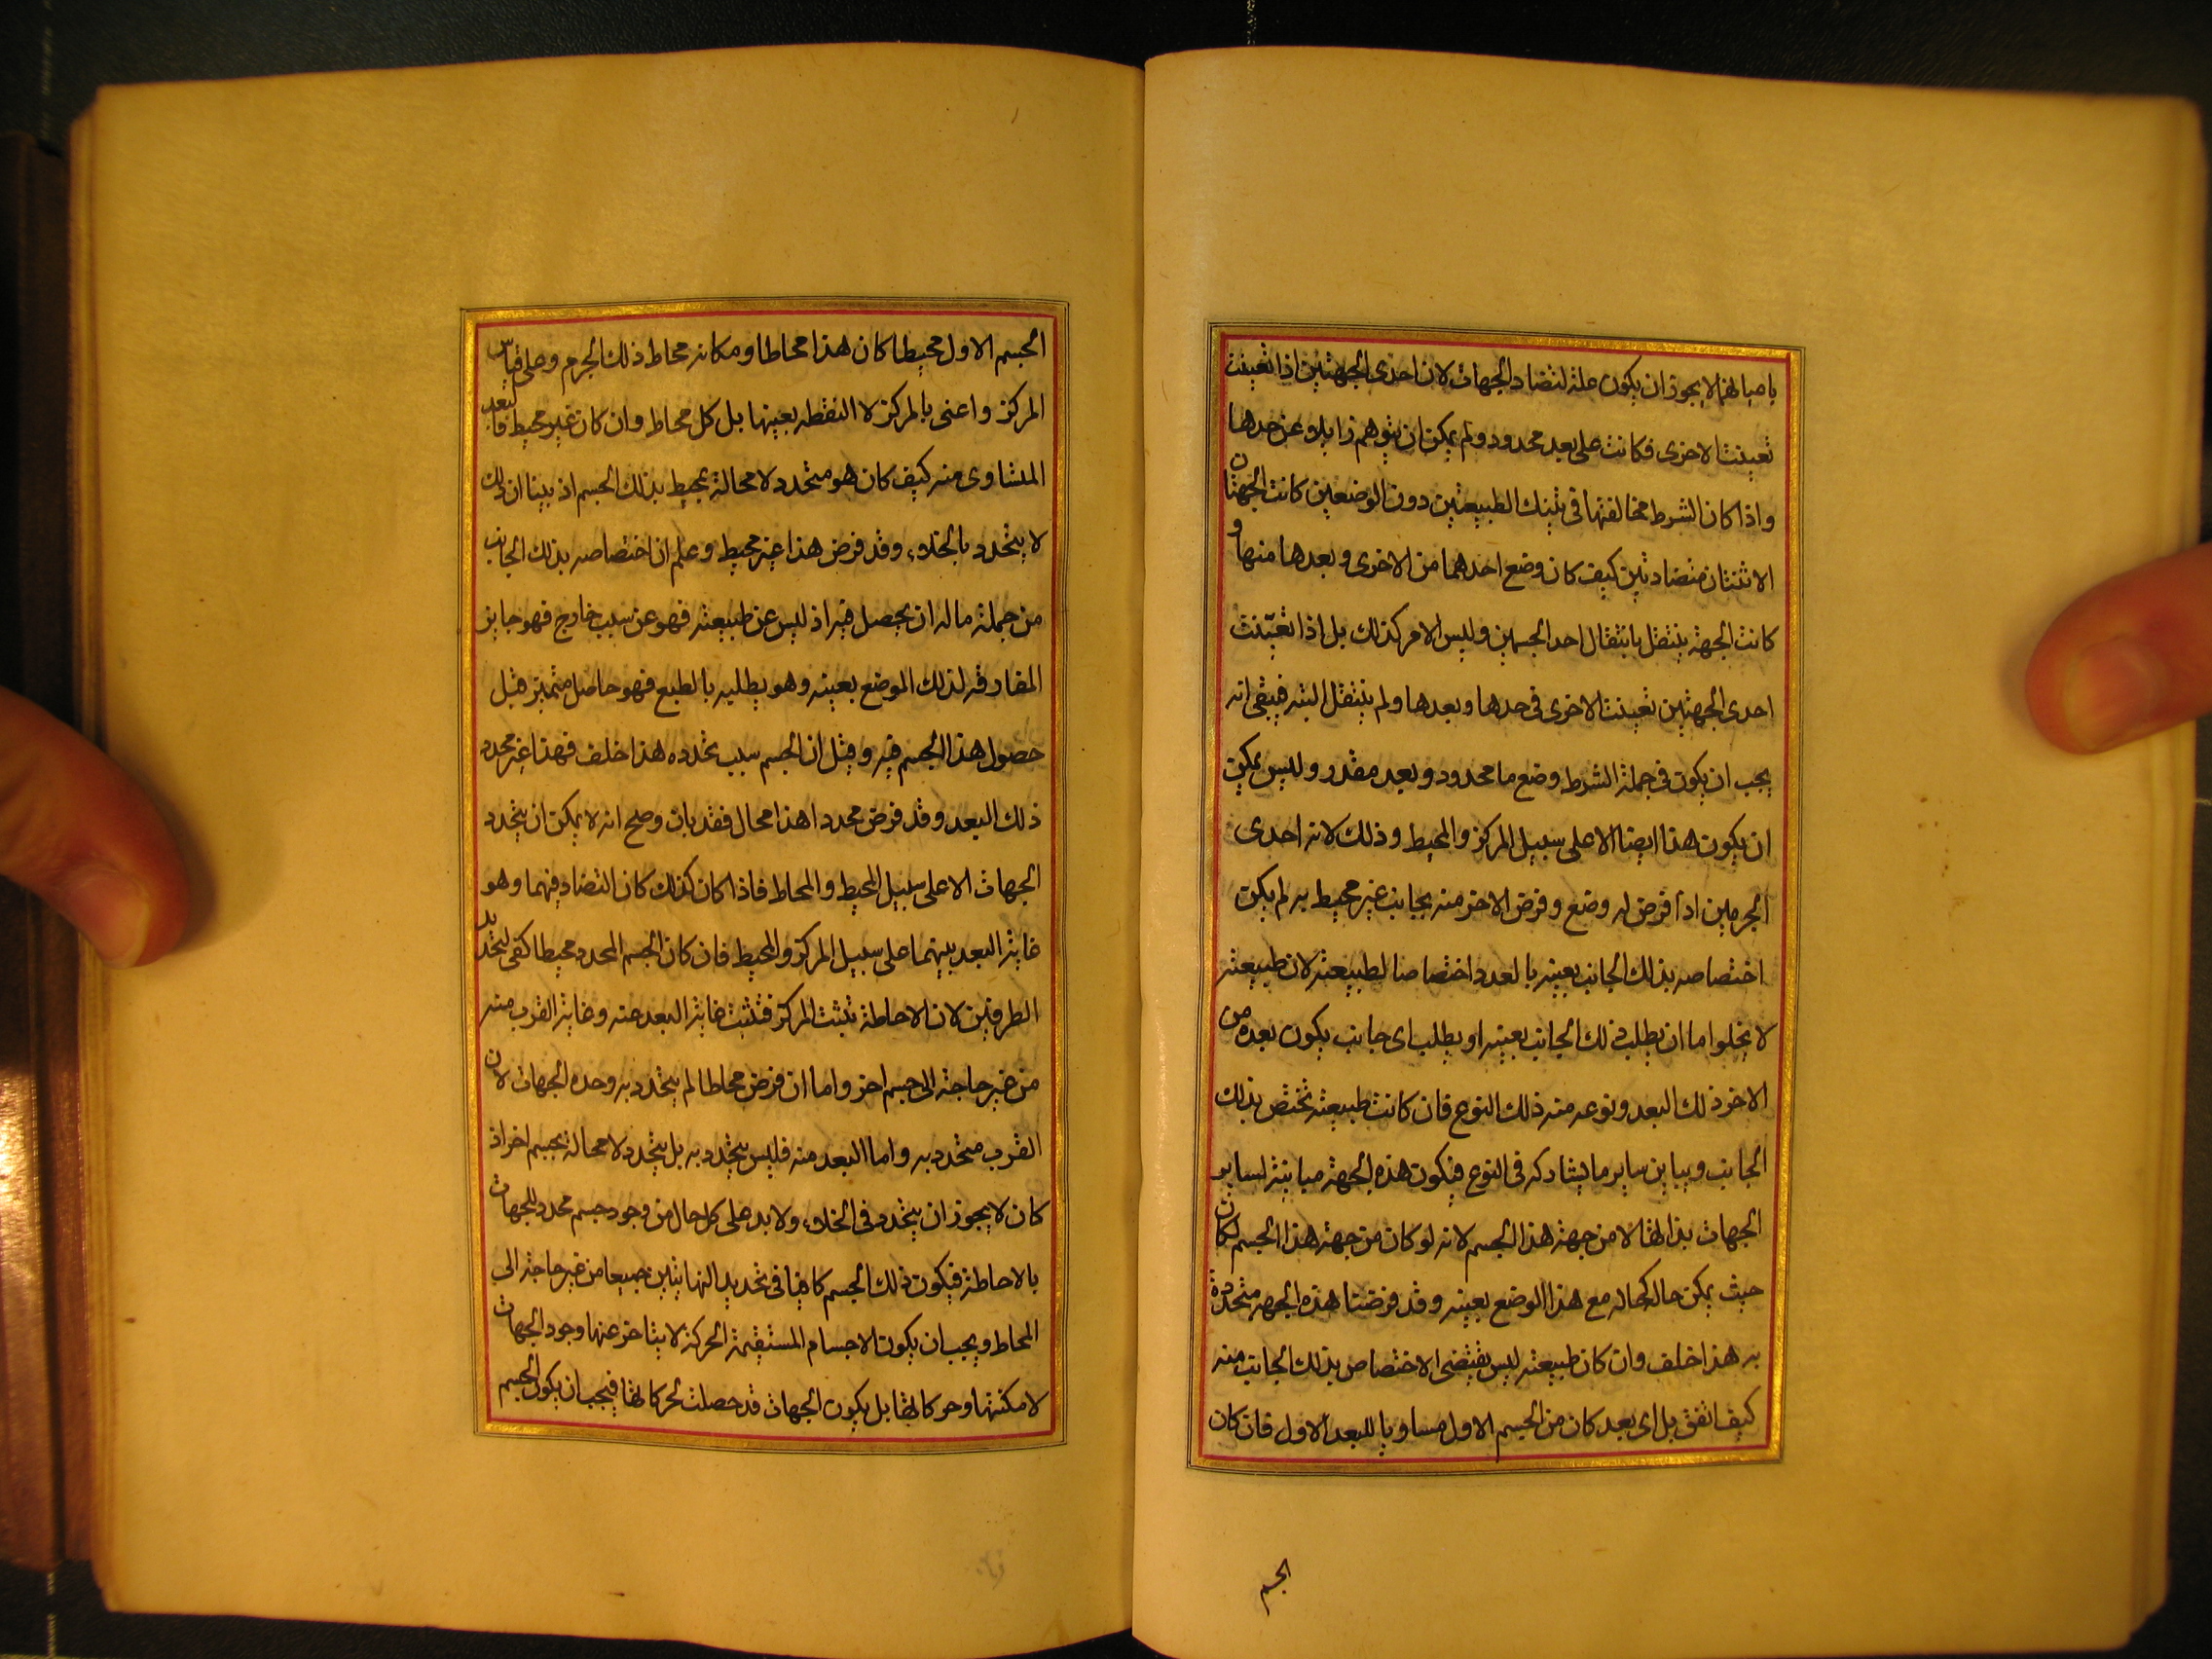 باحيالهما لا يجوز ان يكون علة لتضاد الجهات لان احدى الجهتين اذا تعينت
تعينت الاخرى فكانت على بعد محدود ولم يمكن ان يتوهم زايلا عن حدها
واذا كان الشرط مخالفتها فى تينك الطبيعتين دون الوضعين كانت الجهتان
الاثنتان متضادتين كيف كان وضع احدهما من الاخرى وبعدها منها و
كانت الجهة ينتقل بانتقال احد الجسمين وليس الامر كذلك بل اذا تعيّنت
احدى الجهتين تعينت الاخرى فى حدها وبعدها ولم ينتقل البته فيبقى انه
يجب ان يكون فى جملة الشرط وضع ما محدود وبعد مقدر وليس يمكن
ان يكون هذا ايضا الا على سبيل المركز والمحيط وذلك لانه احدى
الجرمين اذا فرض له وضع وفرض الاخر منه بجانب غير محيط به لم يكن
اختصاصه بذلك الجانب بعينه بالعدد اختصاصا لطبيعته لان طبيعته
لا يخلو اما ان يطلب ذلك الجانب بعينه او يطلب اى جانب يكون بعده من
الاخر ذلك البعد ونوعه منه ذلك النوع فان كانت طبيعته تختص بذلك
الجانب ويباين ساير ما يشاركه فى النوع فيكون هذه الجهة مباينة لساير
الجهات بذاتها لا من جهة هذا الجسم لانه لو كان من جهة هذا الجسم لكان
حيث يمكن حاله كحاله مع هذا الوضع بعينه وقد فرضنا هذه الجهة متحددة
به هذا خلف وان كان طبيعته ليس يقتضى الاختصاص بذلك الجانب منه
كيف اتفق بل اى بعد كان من الجسم الاول مساويا للبعد الاول فان كان
الجسم
الجسم الاول محيطا كان هذا محاطا ومكانه محاط ذلك الجرم وعلى قياس
المركز واعنى بالمركز لا النقطه بعينها بل كل محاط وان كان غير محيط فالبعد
المتساوى منه كيف كان هو متحدد لا محالة بمحيط بذلك الجسم اذ بينا ان ذلك
لا يتحدد بالخلاء وقد فرض هذا غير محيط وعلم ان اختصاصه بذلك الجانب
من جملة ما له ان يحصل فيه اذ ليس عن طبيعته فهو عن سبب خارج فهو جايز
المفارقه لذلك الموضع بعينه وهو يطلبه بالطبع فهو حاصل متميز قبل
حصول هذا الجسم فيه وقيل ان الجسم سبب تحدده هذا خلف فهذا غير محدد
ذلك البعد وقد فرض محددا هذا محال فقد بان وصح انه لا يمكن ان يتحدد
الجهات الا على سبيل المحيط والمحاط فاذا كان كذلك كان التضاد فيهما وهو
غاية البعد بينهما على سبيل المركز والمحيط فان كان الجسم المحدد محيطا كفى لتحديد
الطرفين لان الاحاطة تثبت المركز فتثبت غاية البعد منه وغاية القرب منه
من غير حاجة الى جسم اخر واما ان فرض محاطا لم يتحدد به وحده الجهات لان
القرب متحدد به واما البعد منه فليس يتحدد به بل يتحدد لا محالة بجسم اخر اذ
كان لا يجوز ان يتحدد فى الخلاء ولا بد على كل حال من وجود جسم محدد للجهات
بالاحاطة فيكون ذلك الجسم كافيا فى تحديد النهايتين جميعا من غير حاجة الى
المحاط ويجب ان يكون الاجسام المستقيمة الحركة لا يتاخر عنها وجود الجهات
لامكنتها وحركاتها بل يكون الجهات قد حصلت لحركاتها فيجب ان يكون الجسم